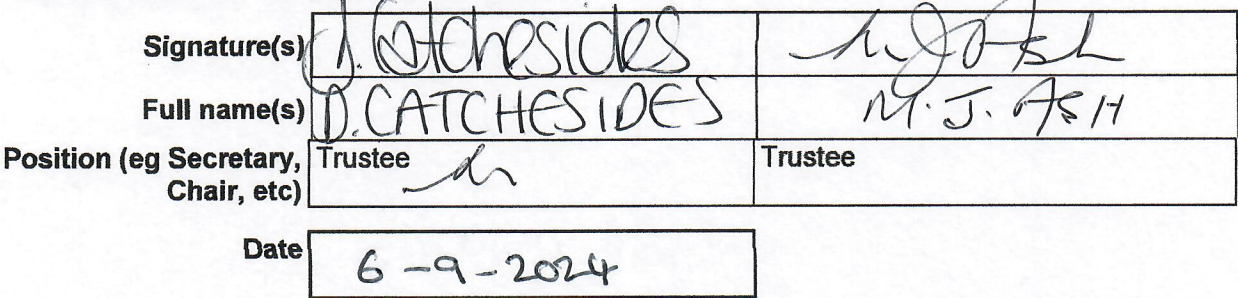 Signature(s) D. Catchesides M J Ash
Full name(s) D. CATCHESIDES M. J. ASH
Position (eg Secretary, Trustee Trustee
Chair, etc)
Date 6-9-2024